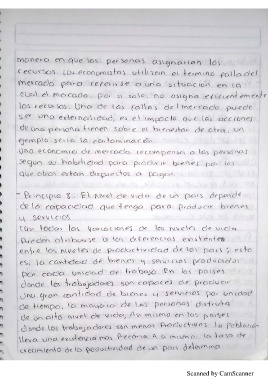 manera en que las personas asignarían los
recursos. Los economistas utilizan el termino falla del
mercado para referirse a una situación en la
cual el mercado, por si solo, no asigna eficientemente
los recursos. Una de las fallas del mercado puede
ser una externalidad, es el impacto que las acciones
de una persona tienen sobre el bienestar de otra, un
ejemplo seria la contaminación.
Una economia de mercado recompensa a las personas
según su habilidad para producir bienes por los
que otros estan dispuestos a pagar.
- Principio 8: El nivel de vida de un país depende
de la capacidad que tenga para producir bienes
y servicios
Casi todas las variaciones de los niveles de vida
pueden atribuirse a las diferencias existentes
entre los niveles de productividad de los países; esto
es, la cantidad de bienes y servicios producidos
por cada unidad de trabajo. En los países
donde los trabajadores son capaces de producir
una gran cantidad de bienes y servicios por unidad
de tiempo, la mayoría de las personas disfruta
de un alto nivel de vida; Asimismo en los países
donde los trabajadores son menos productivos la población
lleva una existencia mas precaria. Asimismo, la tasa de
crecimiento de la productividad de un país determina
Scanned by CamScanner